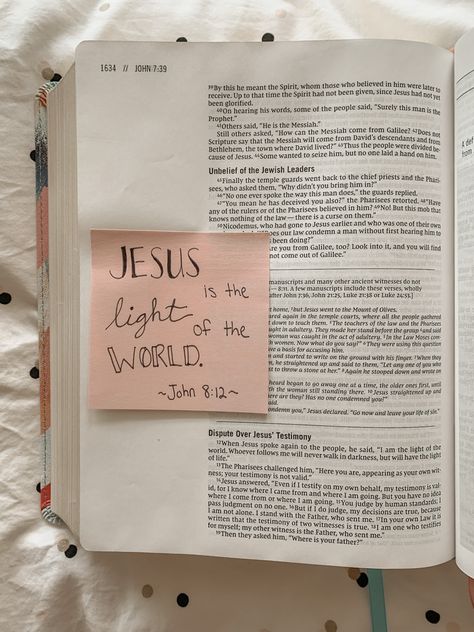 1634 // JOHN 7:39
39By this he meant the Spirit, whom those who believed in him were later to
receive. Up to that time the Spirit had not been given, since Jesus had not yet
been glorified.
40On hearing his words, some of the people said, "Surely this man is the
Prophet."
41Others said, "He is the Messiah."
Still others asked, "How can the Messiah come from Galilee? 42Does not
Scripture say that the Messiah will come from David's descendants and from
Bethlehem, the town where David lived?" 43Thus the people were divided be-
cause of Jesus. 44Some wanted to seize him, but no one laid a hand on him.
Unbelief of the Jewish Leaders
45Finally the temple guards went back to the chief priests and the Phari-
sees, who asked them, "Why didn't you bring him in?"
46"No one ever spoke the way this man does," the guards replied.
47"You mean he has deceived you also?" the Pharisees retorted. 48"Have
any of the rulers or of the Pharisees believed in him? 49No! But this mob that
knows nothing of the law—there is a curse on them."
50Nicodemus, who had gone to Jesus earlier and who was one of their own
"Does our law condemn a man without first hearing him to
been doing?"
are you from Galilee, too? Look into it, and you will
not come out of Galilee."
manuscripts and many other ancient witnesses do not
—8:11. A few manuscripts include these verses, wholly
after John 7:36, John 21:25, Luke 21:38 or Luke 24:53.]
home, 1but Jesus went to the Mount of Olives.
appeared again in the temple courts, where all the people gathered
down to teach them. 3The teachers of the law and the Pharisees
in adultery. They made her stand before the group 4and said
woman was caught in the act of adultery. 5In the Law Moses com-
women. Now what do you say?" 6They were using this question
a basis for accusing him.
and started to write on the ground with his finger. 7When they
he straightened up and said to them, "Let any one of you who
to throw a stone at her." 8Again he stooped down and wrote on
heard began to go away one at a time, the older ones first, until
the woman still standing there. 10Jesus straightened up and
are they? Has no one condemned you?"
condemn you," Jesus declared. "Go now and leave your life of sin."
JESUS
is the
light
of the
WORLD.
~John 8:12~
Dispute Over Jesus' Testimony
12When Jesus spoke again to the people, he said, "I am the light of the
world. Whoever follows me will never walk in darkness, but will have the light
of life."
13The Pharisees challenged him, "Here you are, appearing as your own wit-
ness; your testimony is not valid."
14Jesus answered, "Even if I testify on my own behalf, my testimony is val-
id, for I know where I came from and where I am going. But you have no idea
where I come from or where I am going. 15You judge by human standards; I
pass judgment on no one. 16But if I do judge, my decisions are true, because
I am not alone. I stand with the Father, who sent me. 17In your own Law it is
written that the testimony of two witnesses is true. 18I am one who testifies
for myself; my other witness is the Father, who sent me."
19Then they asked him, "Where is your father?"